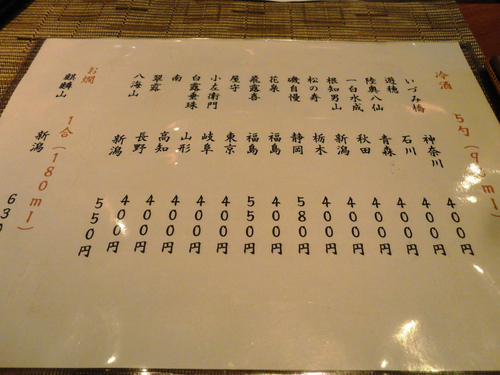 冷酒 5勺(90ml)
いづみ橋 神奈川 400円
遊穂 石川 400円
陸奥八仙 青森 400円
一白水成 秋田 400円
根知男山 新潟 400円
松の寿 栃木 400円
磯自慢 静岡 580円
花泉 福島 400円
飛露喜 福島 550円
屋守 東京 400円
小左衛門 岐阜 400円
白露垂珠 山形 400円
南 高知 400円
翠露 長野 400円
八海山 新潟 550円
お燗 1合(180ml)
麒麟山 新潟 630